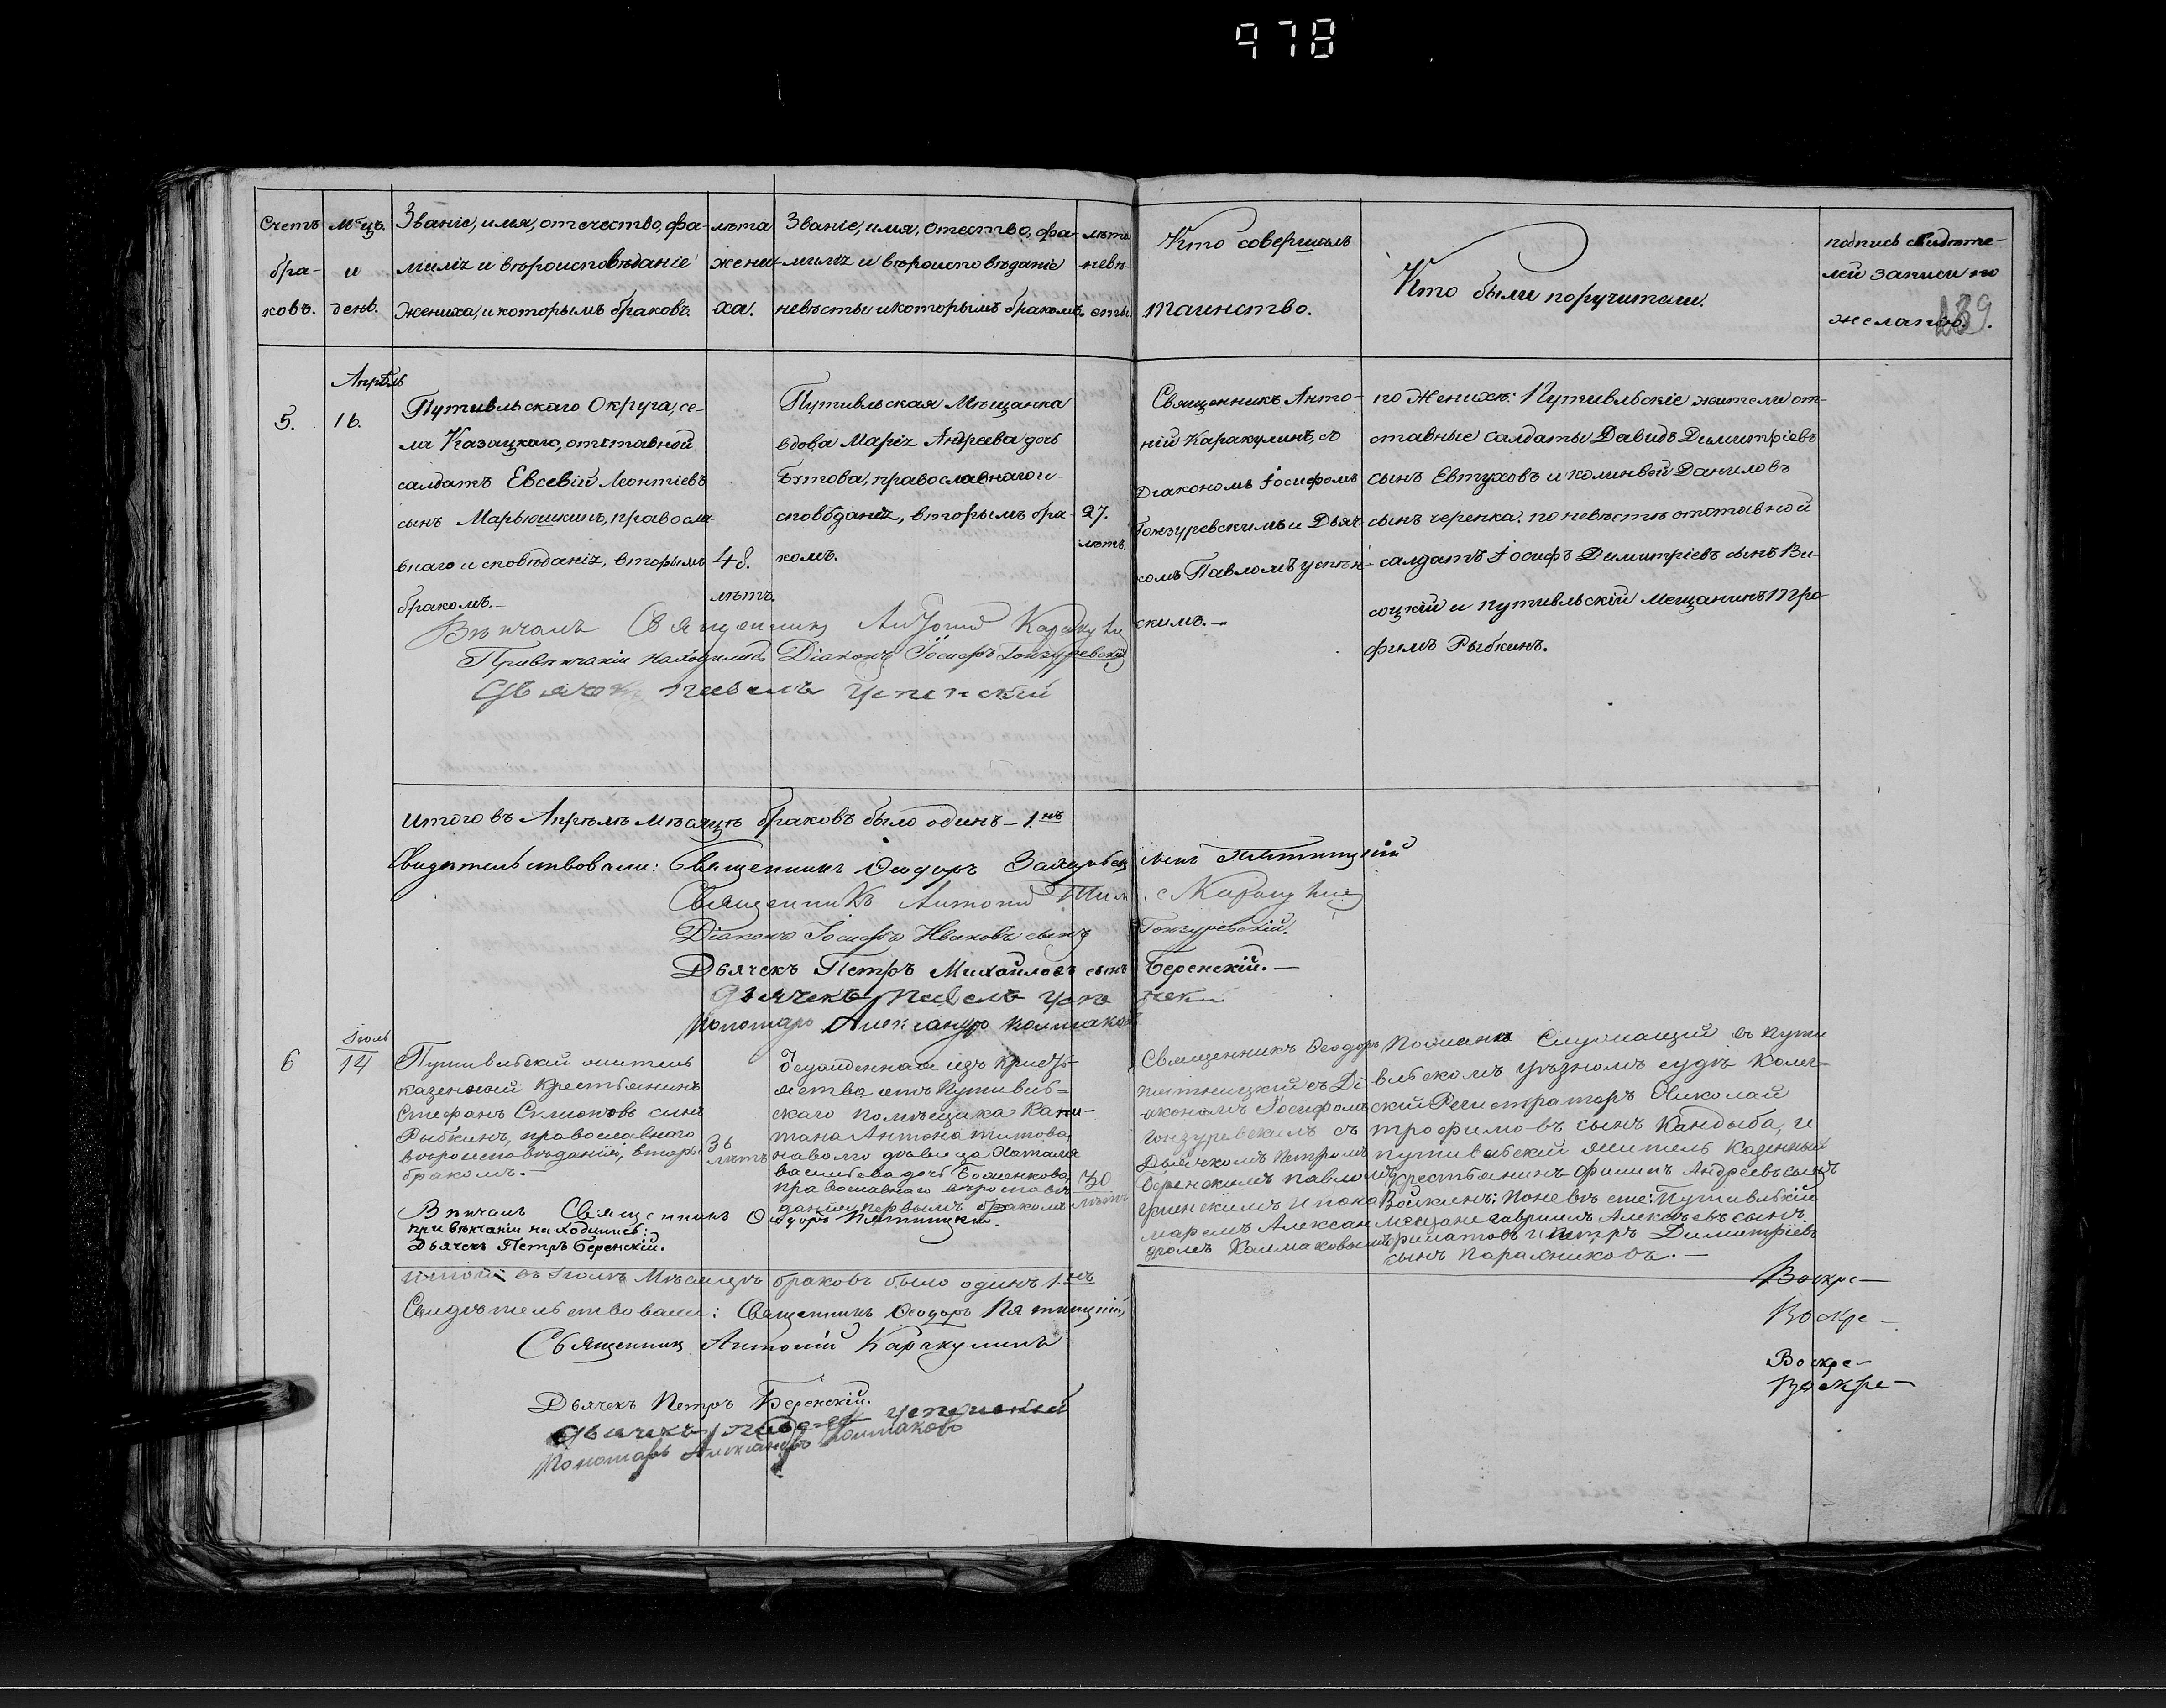 978
Счетъ бра- ковъ.
Мѣцъ. и день.
Званіе, имя, отечество, фа-
милія и вѣроисповѣданіе
жениха, и которымъ бракомъ.
лѣта жени- ха.
Званіе, имя, отчество, фа-
милія и вѣроисповѣданіе
невѣсты и которымъ бракомъ.
лѣта невѣ- сты.
Кто совершалъ
таинство.
Кто были поручители.
подпись свидѣте-
лей записи по
желанію.
5.
Апрѣль
16.
Путивльскаго Округа, се-
ла Казацкаго, отставной
салдатъ Евсевій Леонтіевъ
сынъ Марьюшкинъ, правосла-
внаго исповѣданія, вторымъ
бракомъ.
48.
лѣтъ.
Путивльская Мѣщанка
вдова Марія Андреева дочь
Бѣтова, православнаго и-
сповѣданія, вторымъ бра-
комъ.
27.
лѣтъ.
Священникъ Анто-
ній Каракулинъ, съ
Діакономъ Іосифомъ
Гонзуревскимъ и Дьяч-
комъ Павломъ успен-
скимъ.
по Женихѣ: Путивльскіе жители от-
ставные салдаты Давидъ Димитріевъ
сынъ Евтуховъ и Даниловъ
сынъ черепка. по невѣстѣ отставной
салдатъ Іосифъ Димитріевъ сынъ Ви-
соцкій и путивльскій Мещанинъ Тро-
фимъ Рыбкинъ.
Вѣнчалъ Священникъ Антоній
При вѣнчаніи находились Діаконъ Іосифъ Гонзуревскій
Дьячокъ Павелъ Успенскій
итого въ Апрѣлѣ мѣсяцѣ браковъ было одинъ – 1.нъ
Свидѣтельствовали: Священникъ Ѳеодоръ Пятницкій
Священникъ Антоній
Діаконъ Іосифъ Ивановъ сынъ Гонзуревскій.
Дьячекъ Петръ Михайловъ сынъ Беренскій.
Дьячекъ Павелъ Успенскій
Пономарь Александръ Колмаковъ
6
Іюль
14
Путивльскій житель
казенный крестьянинъ
Стефанъ сынъ
Рыбкинъ, православнаго
вѣроисповѣданія, вторы
бракомъ.
36
лѣтъ
изъ крестья-
нства отъ Путивль-
скаго помѣщика Капи-
тана Антона титова,
на волю дѣвица Наталія
васильева дочь Боженкова,
православнаго вѣроисповѣ-
данія, первымъ бракомъ
30
лѣтъ
Священникъ Ѳеодоръ
пятницкій съ Ді-
акономъ Іосифомъ
гонзуревскимъ съ
Дьячкомъ Петромъ
Беренскимъ павломъ
успенскимъ и поно-
маремъ Алексан-
дромъ Калмаковымъ
По жениху Служащій въ Пути-
вльскомъ уѣздномъ судѣ Колеж-
скій Регистраторъ Николай
трофимовъ сынъ Кандыба, и
путивльскій житель казенный
крестьянинъ филипъ Андреевъ сынъ
По невѣстѣ: Путивльскіи
мещане гавріилъ Алексѣевъ сынъ
филатовъ и петръ Димитріевъ
сынъ
Вѣнчалъ Священникъ Ѳеодоръ Пятницкій.
при вѣнчаніи находились:
Дьячекъ Петръ Беренскій.
итого въ Іюлѣ Мѣсяцѣ браковъ было одинъ 1.нъ
Свидѣтельствовали: Священникъ Ѳеодоръ Пятницкій,
Священникъ Антоній Каракулинъ
Дьячекъ Петръ Беренскій.
Дьячекъ Павелъ Успенскій
Пономарь Александръ Колмаковъ
Воскре-
Воскре-
Воскре-
Воскре-